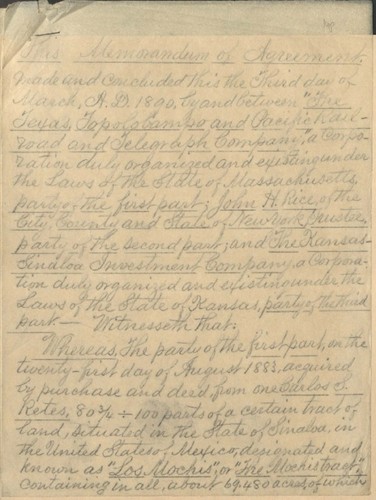 This Memorandum of Agreement,
made and concluded this the Third day of
March, A.D. 1890, by and between "The
Texas, Topolobampo and Pacific Rail-
road and Telegraph Company," a Corpo-
ration duly organized and existing under
the Laws of the State of Massachusetts,
party of the first part; John H. Rice, of the
City, County and State of New York, Trustee,
party of the second part; and The Kansas-
Sinaloa Investment Company, a Corpora-
tion duly organized and existing under the
Laws of the State of Kansas, party of the third
part.— Witnesseth that:
Whereas, The party of the first part, on the
twenty-first day of August 1883, acquired
by purchase and deed, from one Carlos S.
Retes, ÷ 100 parts of a certain tract of
land, situated in the State of Sinaloa, in
the United States of Mexico, designated and
known as "Los Mochis", or "The Mochis tract",
containing in all, about 69,480 acres, of which